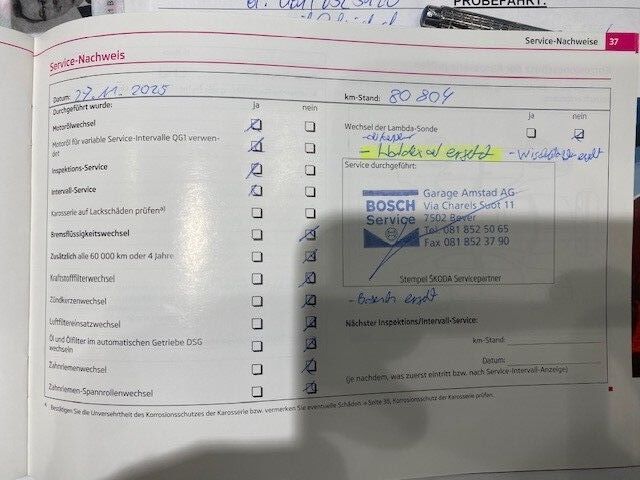 PROBEFAHRT:
Service-Nachweise 37
Service-Nachweis
Datum: 27.11.2025
km-Stand: 80 804
Durchgeführt wurde:
ja nein
ja nein
Motorölwechsel
Motoröl für variable Service-Intervalle QG1 verwen-
det
Inspektions-Service
Intervall-Service
Karosserie auf Lackschäden prüfen a)
Bremsflüssigkeitswechsel
Zusätzlich alle 60 000 km oder 4 Jahre
Kraftstofffilterwechsel
Zündkerzenwechsel
Luftfiltereinsatzwechsel
Öl und Ölfilter im automatischen Getriebe DSG
wechseln
Zahnriemenwechsel
Zahnriemen-Spannrollenwechsel
Wechsel der Lambda-Sonde
- Haldex öl ersetzt
Service durchgeführt:
BOSCH
Service
Garage Amstad AG
Via Charels Suot 11
7502 Bever
Tel 081 852 50 65
Fax 081 852 37 90
Stempel ŠKODA Servicepartner
ersetzt
Nächster Inspektions-/Intervall-Service:
km-Stand:
Datum:
(je nachdem, was zuerst eintritt bzw. nach Service-Intervall-Anzeige)
a) Bestätigen Sie die Unversehrtheit des Korrosionsschutzes der Karosserie bzw. vermerken Sie eventuelle Schäden » Seite 38, Korrosionsschutz der Karosserie prüfen.